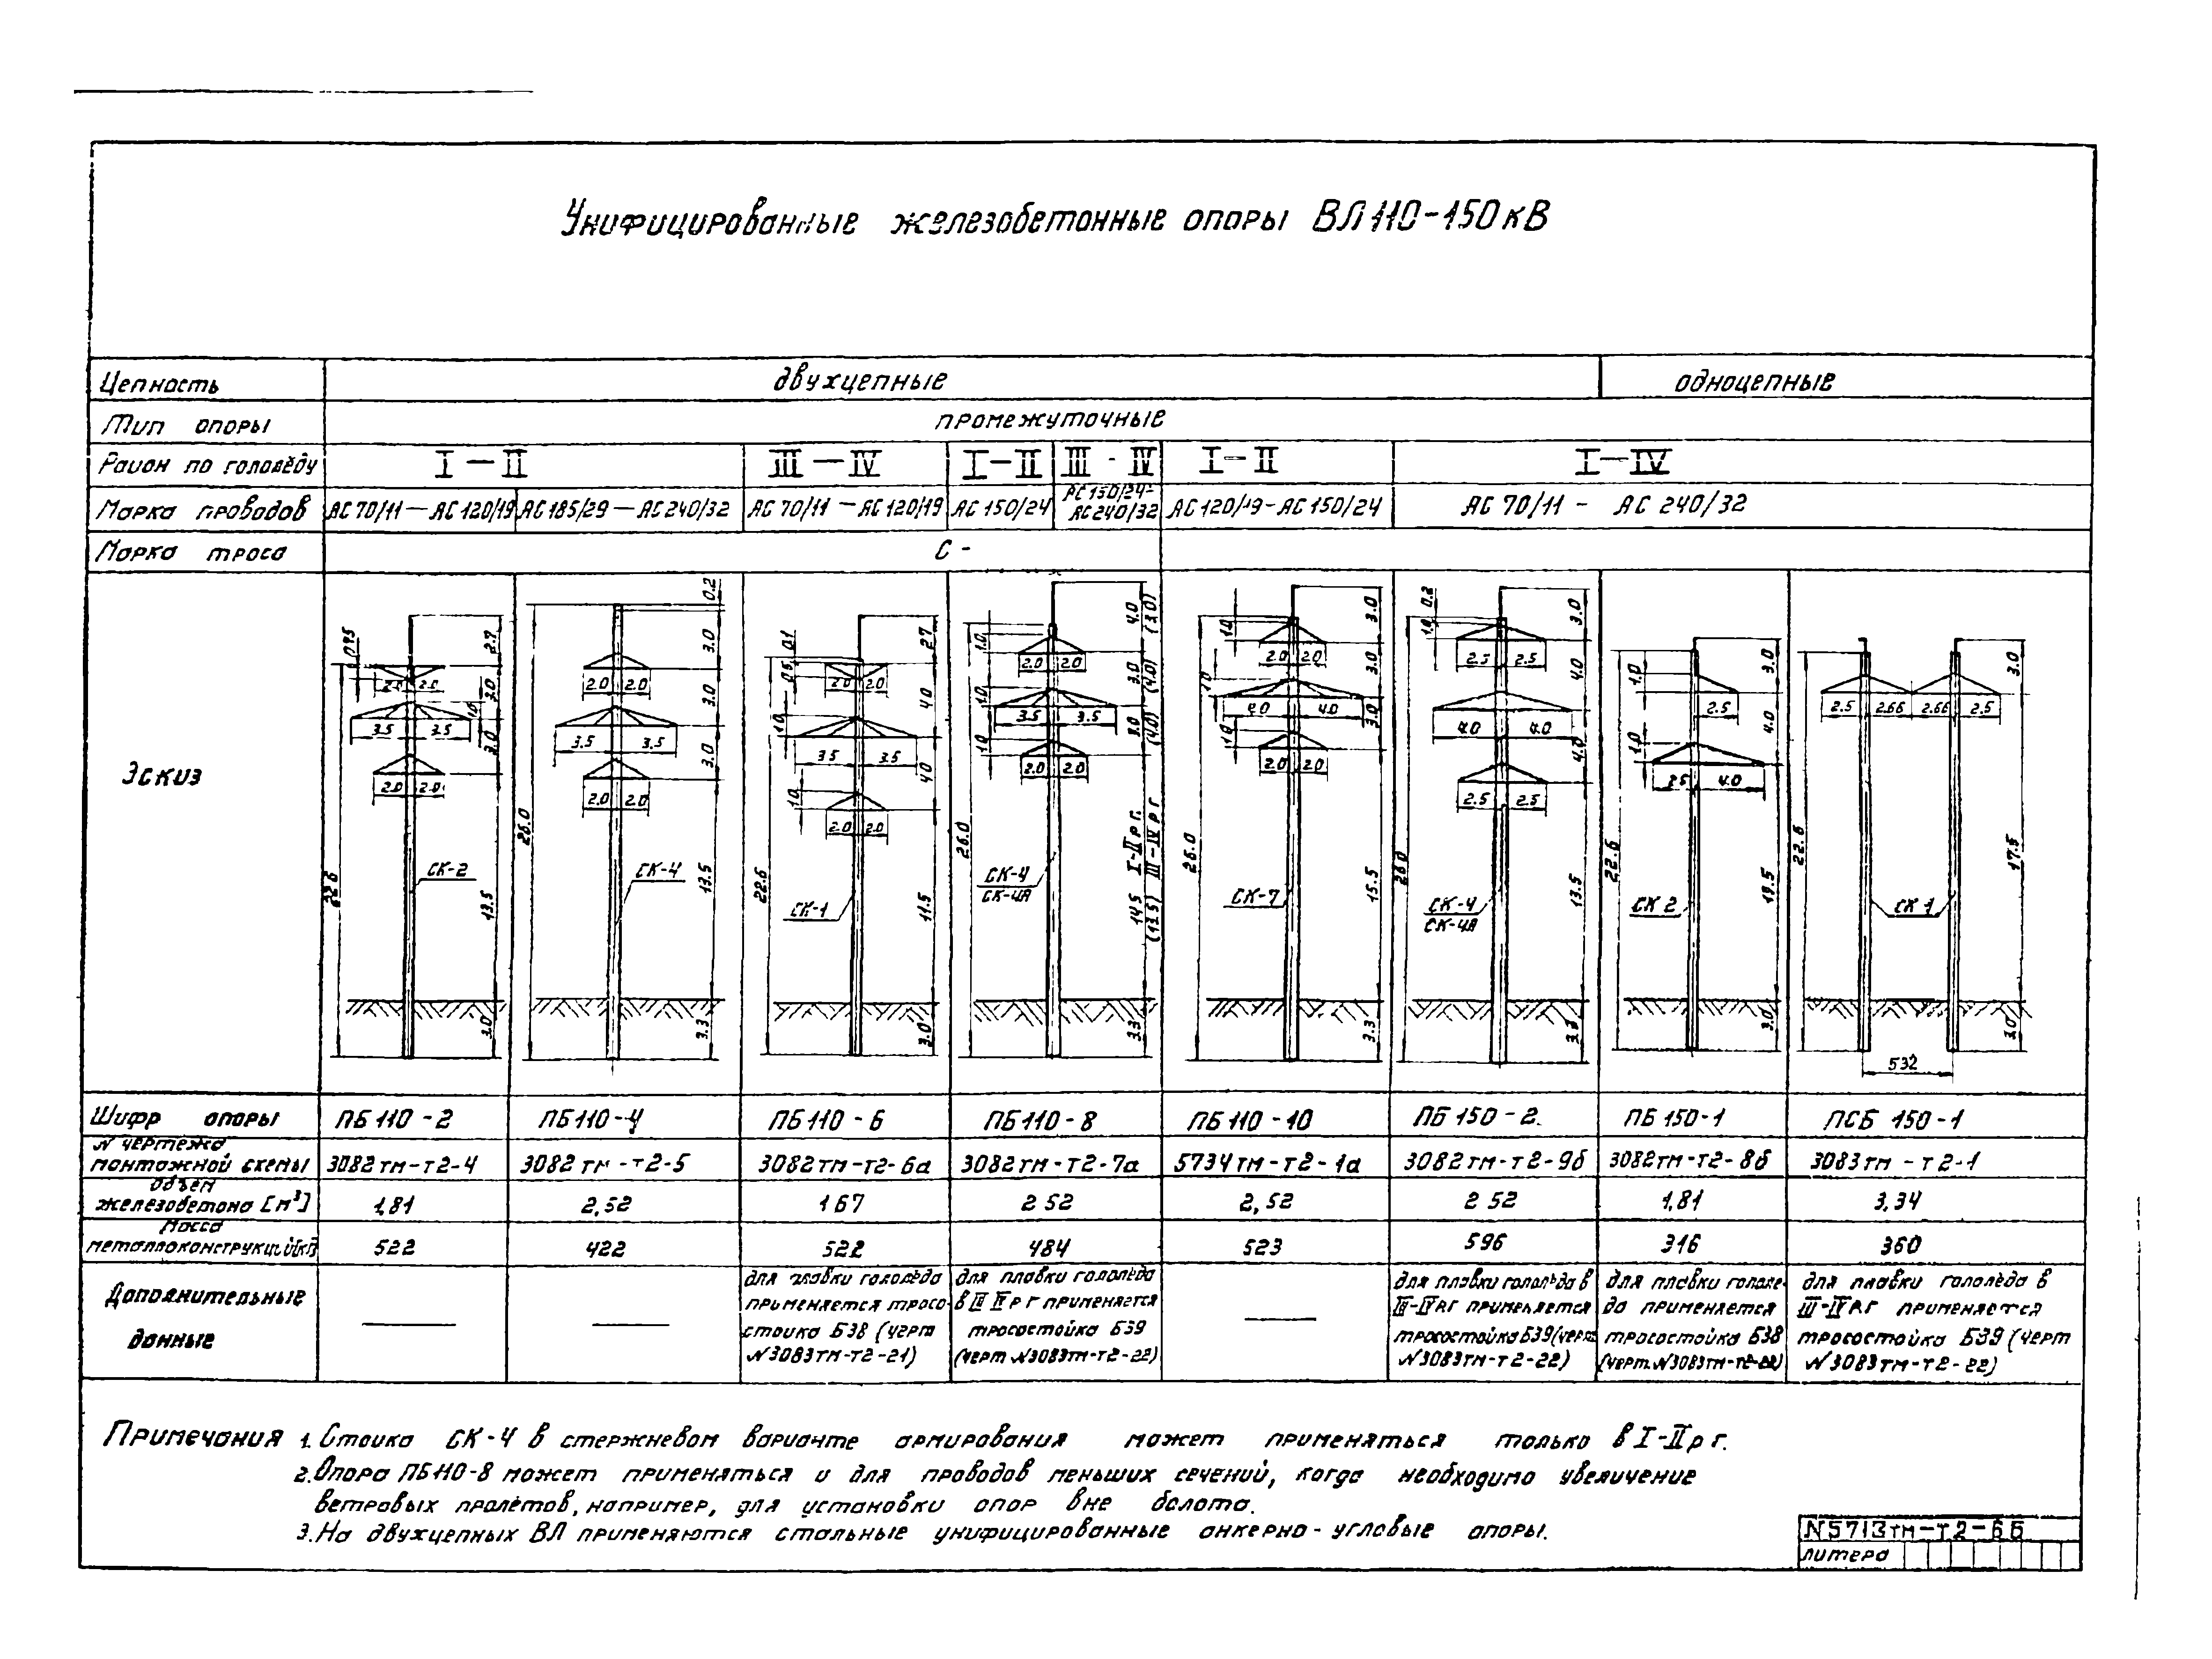 Унифицированные железобетонные опоры ВЛ 110-150 кВ
Цепность двухцепные одноцепные
Тип опоры промежуточные
Район по гололёду I-II III-IV I-II III-IV I-II I-IV
Марка проводов АС 70/11-АС 120/19 АС 185/29-АС 240/32 АС 70/11-АС 120/19 АС 150/24 АС 150/24-АС 240/32 АС 120/19-АС 150/24 АС 70/11 - АС 240/32
Марка троса С-
Эскиз
0.75 2.7 2.0 2.0 3.0 1.0 3.5 3.5 3.0 2.0 2.0 22.6 СК-2 13.5 3.0
0.2 3.0 2.0 2.0 3.0 3.5 3.5 3.0 2.0 2.0 26.0 СК-4 13.5 3.3
0.1 0.5 2.7 2.0 2.0 4.0 1.0 3.5 3.5 4.0 1.0 2.0 2.0 22.6 СК-1 11.5 3.0
1.0 4.0 (3.0) 2.0 2.0 3.0 (4.0) 1.0 3.5 3.5 3.0 (4.0) 1.0 2.0 2.0 26.0 СК-4 СК-4А 14.5 I-II р г. (13.5) III-IV р г 3.3
1.0 3.0 2.0 2.0 3.0 1.0 4.0 4.0 3.0 1.0 2.0 2.0 26.0 СК-7 15.5 3.3
0.2 1.0 3.0 2.5 2.5 4.0 4.0 4.0 4.0 2.5 2.5 26.0 СК-4 СК-4А 13.5 3.3
1.0 3.0 2.5 4.0 1.0 2.5 4.0 22.6 СК 2 3.0
3.0 2.5 2.66 2.66 2.5 22.6 СК 1 17.5 3.0 532
Шифр опоры ПБ110-2 ПБ110-4 ПБ110-6 ПБ110-8 ПБ110-10 ПБ 150-2 ПБ 150-1 ПСБ 150-1
N чертежа
монтажной схемы 3082тм-т2-4 3082тм-т2-5 3082тм-т2-6а 3082тм-т2-7а 5734тм-т2-1а 3082тм-т2-9б 3082тм-т2-8б 3083тм-т2-1
Объем
железобетона [м³] 1,81 2,52 1 67 2 52 2,52 2 52 1,81 3,34
Масса
металлоконструкций[кг] 522 422 522 484 523 596 316 360
Дополнительные
данные
для плавки гололёда
применяется тросо-
стоика Б38 (черт
N3083тм-т2-21)
для плавки гололёда
в III IV р г применяется
тросостойка Б39
(черт N3083тм-т2-22)
для плавки гололёда в
III-IV р.г применяется
тросостойка Б39(черт
N3083тм-т2-22)
для плавки гололе-
да применяется
тросостойка Б38
(черт. N3083тм-т2-22)
для плавки гололёда в
III-IV р.г применяется
тросостойка Б39 (черт
N3083тм-т2-22)
Примечания 1. Стоика СК-4 в стержневом варианте армирования может применяться только в I-II р г.
2. Опора ПБ110-8 может применяться и для проводов меньших сечений, когда необходимо увеличение
ветровых пролётов, например, для установки опор вне болота.
3. На двухцепных ВЛ применяются стальные унифицированные анкерно-угловые опоры.
N5713тм-т2-6Б
литера